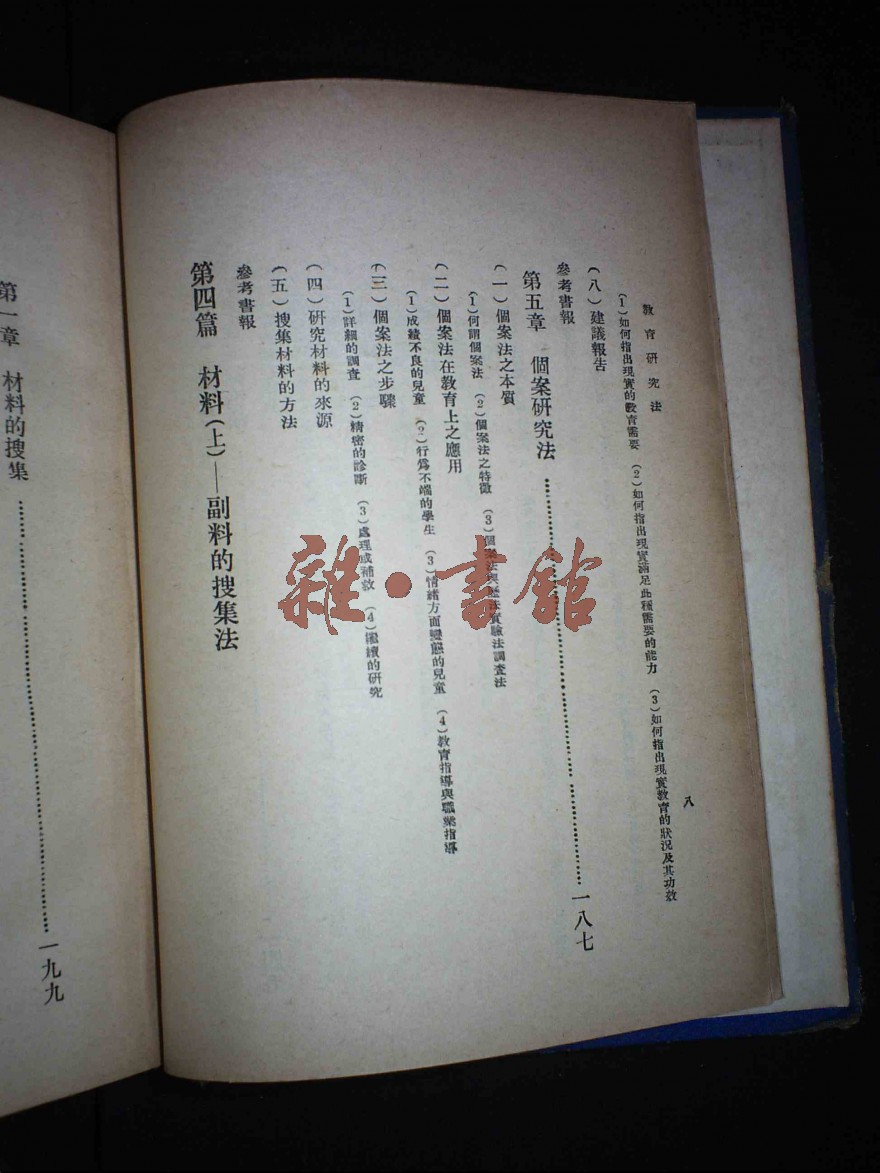 教育研究法
八
(1)如何指出現實的教育需要 (2)如何指出現實滿足此種需要的能力 (3)如何指出現實教育的狀況及其功效
(八)建議報告
參考書報
第五章 個案研究法……一八七
(一)個案法之本質
(1)何謂個案法 (2)個案法之特徵 (3)個案法與歷史法實驗法調查法
(二)個案法在教育上之應用
(1)成績不良的兒童 (2)行爲不端的學生 (3)情緒方面變態的兒童 (4)教育指導與職業指導
(三)個案法之步驟
(1)詳細的調查 (2)精密的診斷 (3)處理或補救 (4)繼續的研究
(四)研究材料的來源
(五)搜集材料的方法
參考書報
第四篇 材料(上)——副料的搜集法
第一章 材料的搜集……一九九
雜·書館